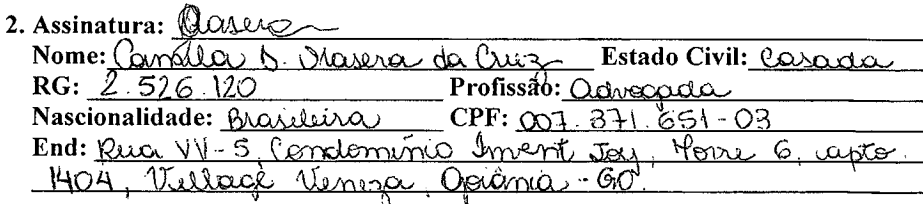 2. Assinatura:
Nome: Camilla D. Nasera da Cruz Estado Civil: Casada
RG: 2.526.120 Profissão: Advogada
Nascionalidade: Brasileira CPF: 007.371.651-03
End: Rua VV-5 Condomínio Invent Joy, Torre 6, apto.
1404, Village Veneza, Goiânia-GO.